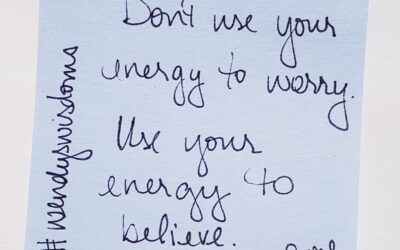 Don't use your
energy to worry.
Use your
energy to
believe.
#wendyswisdoms